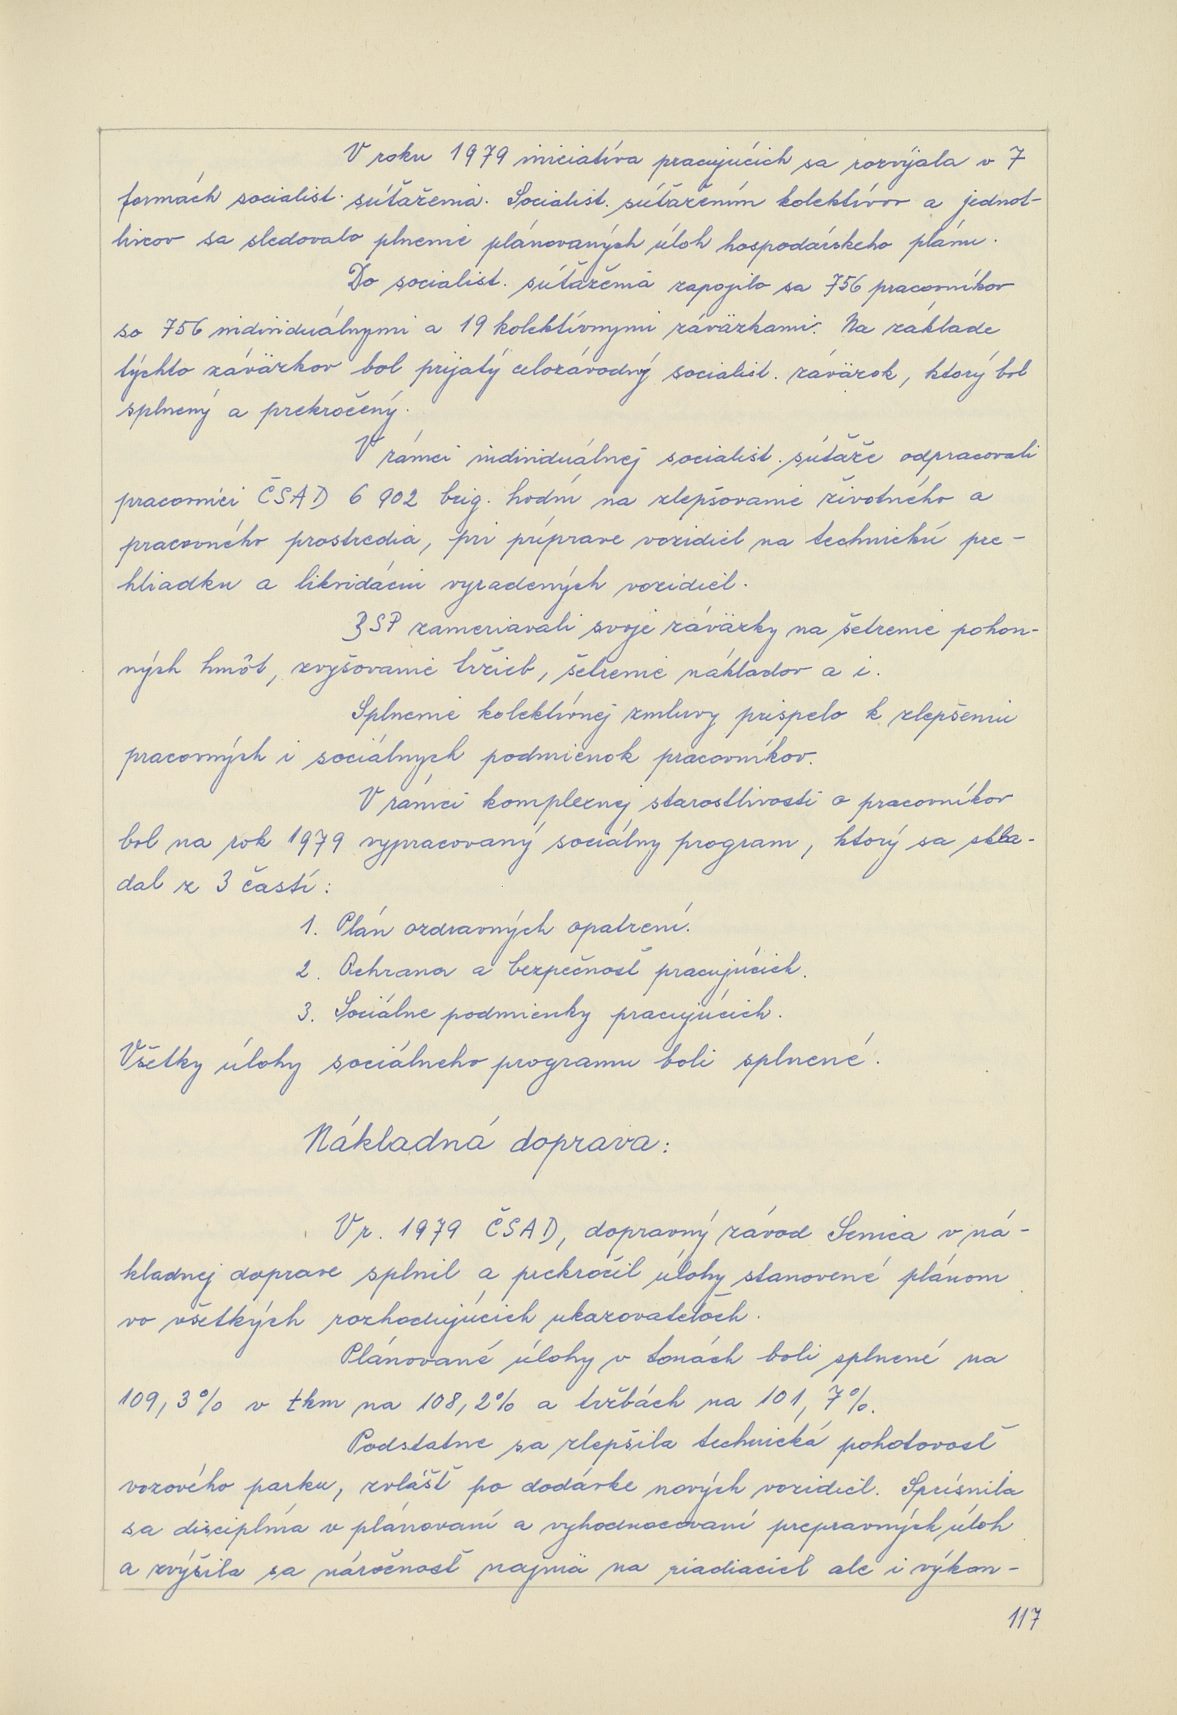 V roku 1979 iniciatíva pracujúcich sa rozvíjala v 7
formách socialist. súťaženia. Socialist. súťažením kolektívov a jednot-
livcov sa sledovalo plnenie plánovaných úloh hospodárskeho plánu.
Do socialist. súťaženia zapojilo sa 756 pracovníkov
so 756 individuálnymi a 19 kolektívnymi záväzkami. Na základe
týchto záväzkov bol prijatý celozávodný socialist. záväzok, ktorý bol
splnený a prekročený.
V rámci individuálnej socialist. súťaže odpracovali
pracovníci ČSAD 6 902 brig. hodín na zlepšovanie životného a
pracovného prostredia, pri príprave vozidiel na technickú pre-
hliadku a likvidáciu vyradených vozidiel.
BSP zameriavali svoje záväzky na šetrenie pohon-
ných hmôt, zvyšovanie tržieb, šetrenie nákladov a i.
Splnenie kolektívnej zmluvy prispelo k zlepšeniu
pracovných i sociálnych podmienok pracovníkov.
V rámci komplexnej starostlivosti o pracovníkov
bol na rok 1979 vypracovaný sociálny program, ktorý sa skla-
dal z 3 častí:
1. Plán ozdravných opatrení.
2. Ochrana a bezpečnosť pracujúcich.
3. Sociálne podmienky pracujúcich.
Všetky úlohy sociálneho programu boli splnené.
Nákladná doprava:
V r. 1979 ČSAD, dopravný závod Senica v ná-
kladnej doprave splnil a prekročil úlohy stanovené plánom
vo všetkých rozhodujúcich ukazovateľoch.
Plánované úlohy v tonách boli splnené na
109,3% v tkm na 108,2% a tržbách na 101,7%.
Podstatne sa zlepšila technická pohotovosť
vozového parku, zvlášť po dodávke nových vozidiel. Sprísnila
sa disciplína v plánovaní a vyhodnocovaní prepravných úloh
a zvýšila sa náročnosť najmä na riadiacich ale i výkon-
117